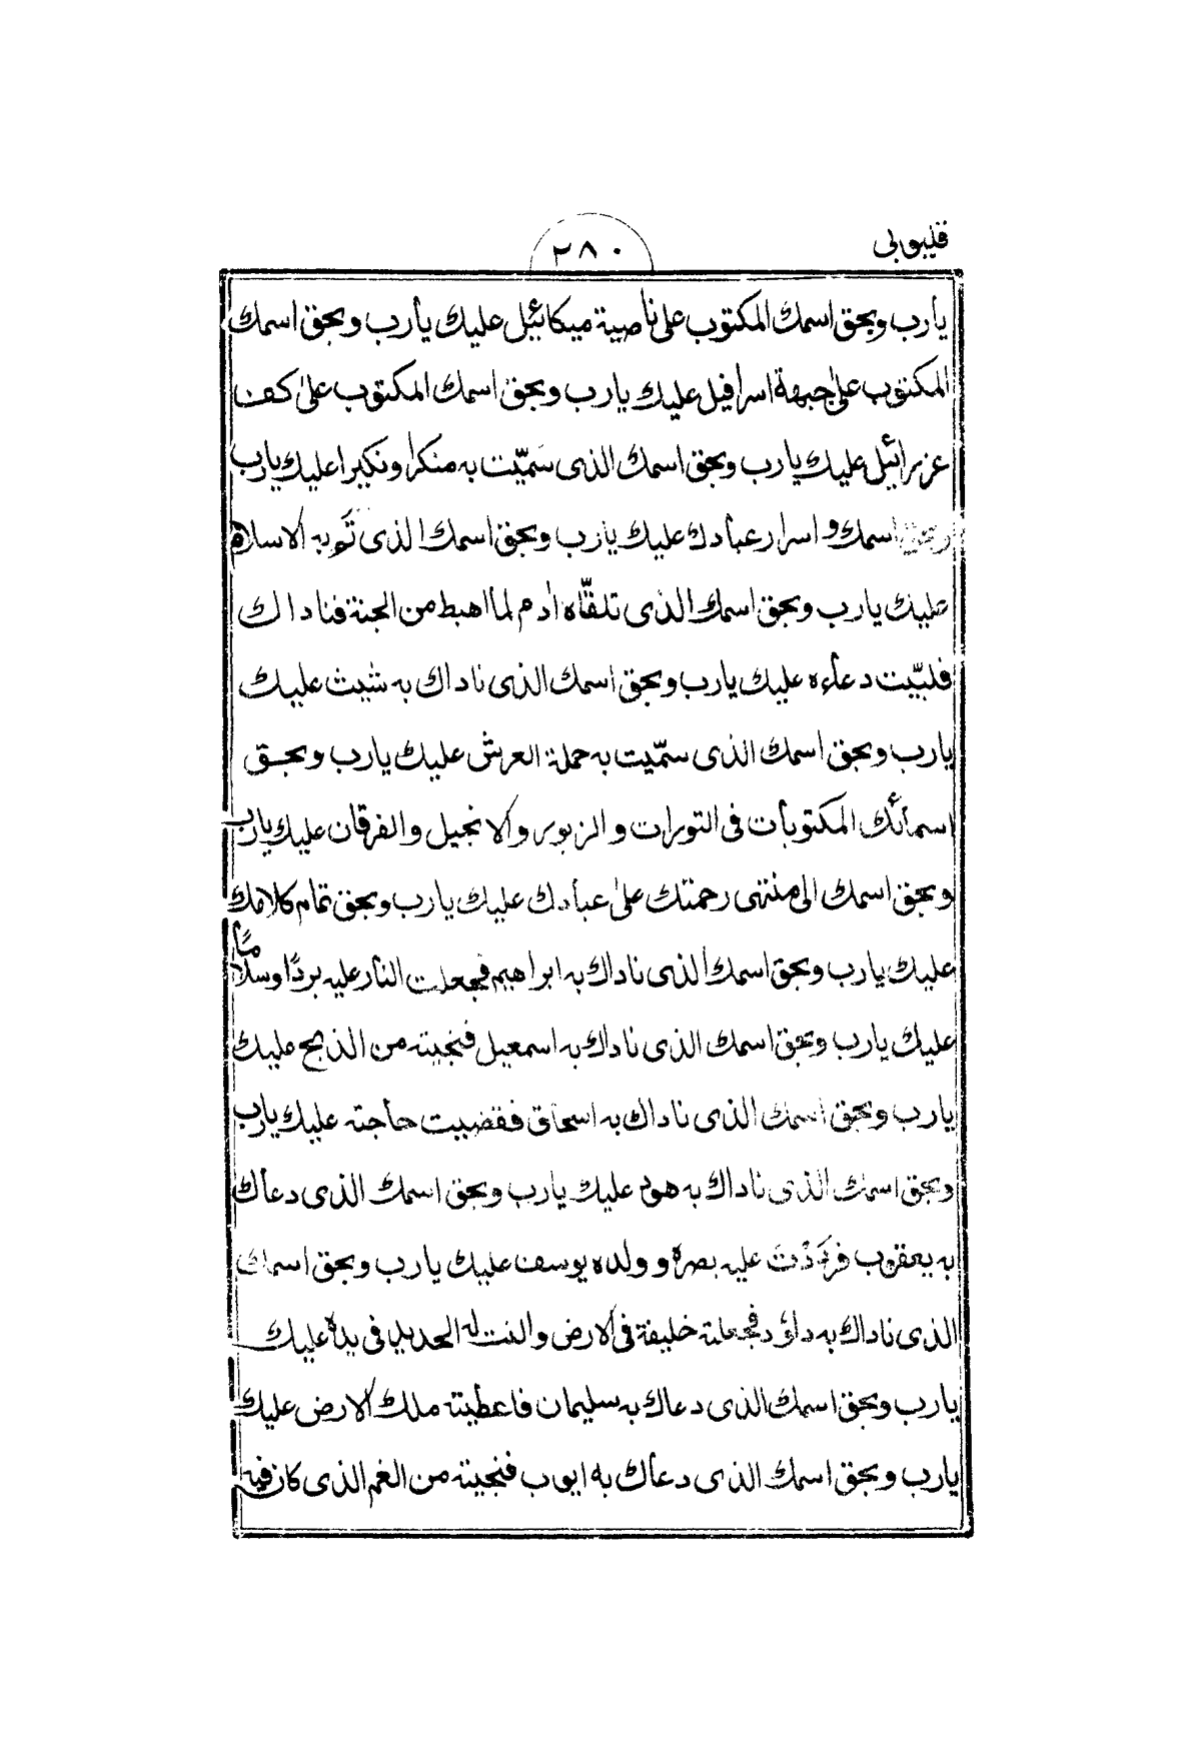 قليوبى
٢٨٠
يارب وبحق اسمك المكتوب على ناصية ميكائيل عليك يارب وبحق اسمك
المكتوب على جبهة اسرافيل عليك يارب وبحق اسمك المكتوب على كف
عزرائيل عليك يارب وبحق اسمك الذى سَميّت به منكرا ونكيرا عليك يارب
وبحق اسمك و اسرار عبادك عليك يارب وبحق اسمك الذى تَم به الاسلام
عليك يارب وبحق اسمك الذى تلقّاه ادم لما اهبط من الجنة فنادا ك
فلبيّت دعاءه عليك يارب وبحق اسمك الذى ناداك به شيث عليك
يارب وبحق اسمك الذى سمّيت به حملة العرش عليك يارب وبحق
اسمائك المكتوبات فى التورات و الزبور والانجيل و الفرقان عليك يارب
وبحق اسمك الى منتهى رحمتك على عبادك عليك يارب وبحق تمام كلامك
عليك يارب وبحق اسمك الذى ناداك به ابراهيم فجعلت النار عليه بردًا وسلامًا
عليك يارب وبحق اسمك الذى ناداك به اسمعيل فنجيته من الذبح عليك
يارب وبحق اسمك الذى ناداك به اسحاق فقضيت حاجته عليك يارب
وبحق اسمك الذى ناداك به هود عليك يارب وبحق اسمك الذى دعاك
به يعقوب فرَدَدْتَ عليه بصره و ولده يوسف عليك يارب وبحق اسمك
الذى ناداك به داؤد فجعلته خليفة فى الارض والنت له الحديد فى يده عليك
يارب وبحق اسمك الذى دعاك به سليمان فاعطيته ملك الارض عليك
يارب وبحق اسمك الذى دعاك به ايوب فنجيته من الغم الذى كان فيه